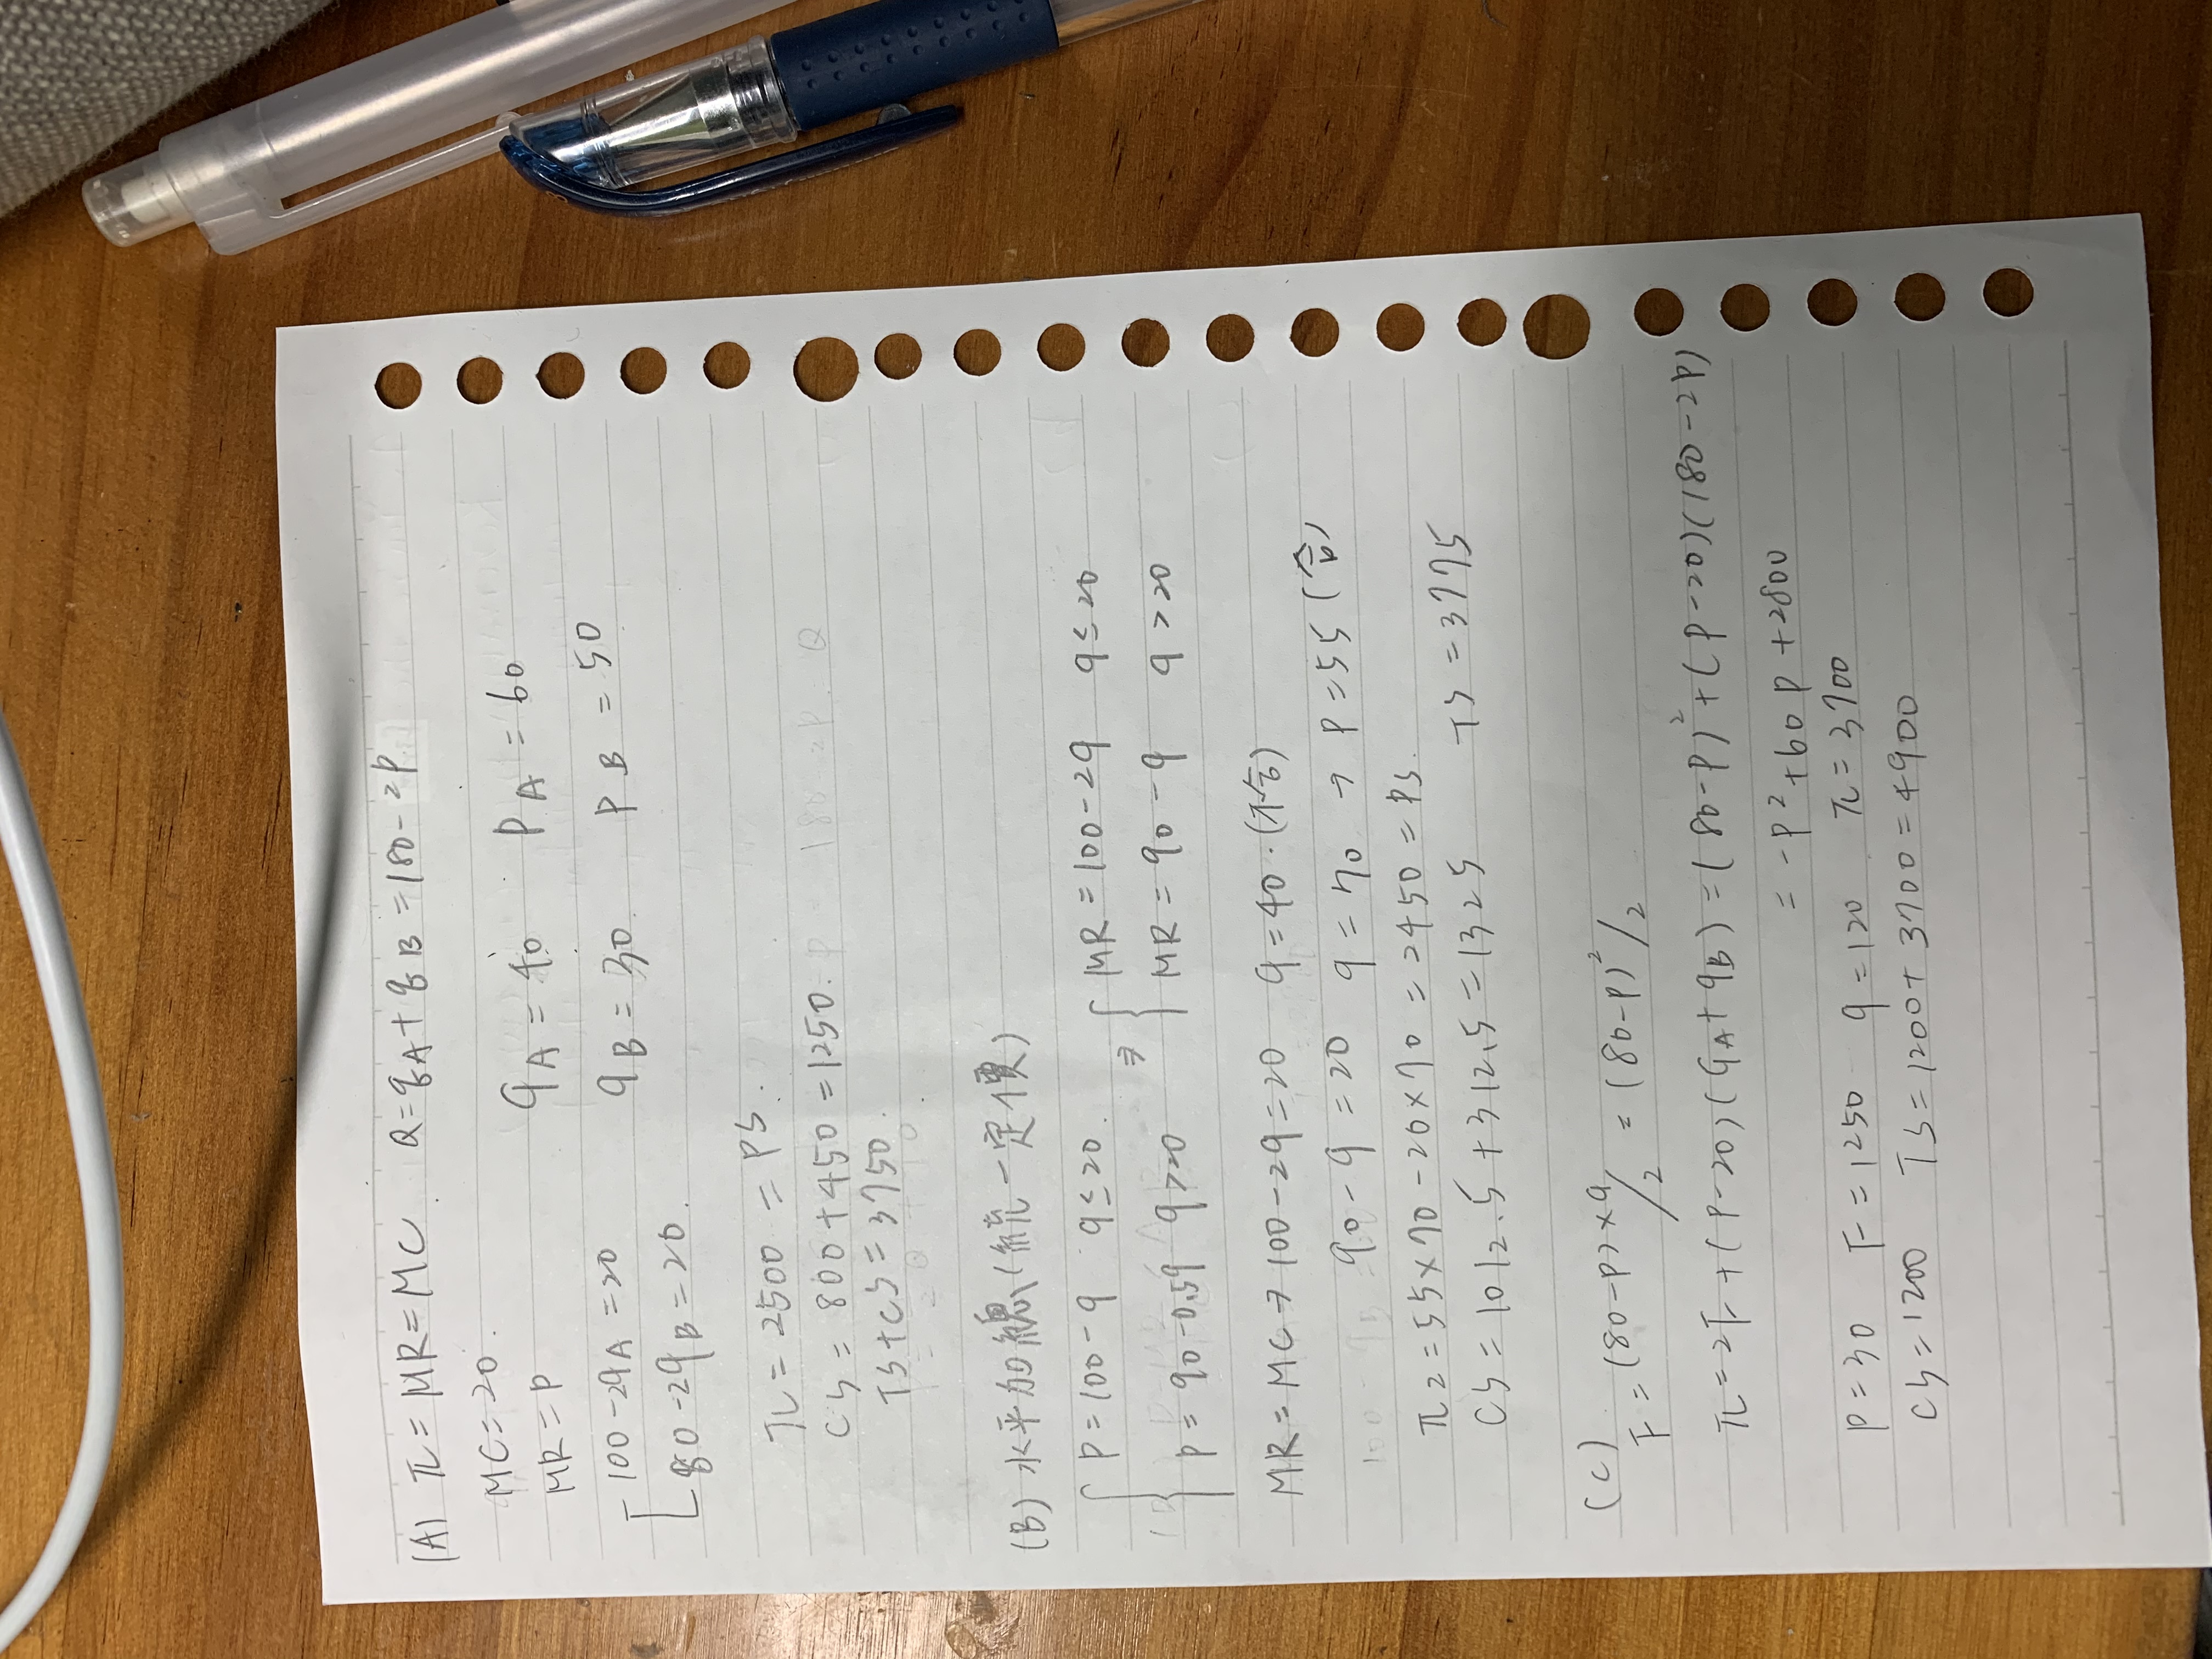 (A) π = MR = MC. Q = qA + qB = 180 - 2P
MC = 20.
MR = P
qA = 40 PA = 60
100 - 2qA = 20
qB = 30. PB = 50
80 - 2qB = 20.
π = 2500 = PS.
CS = 800 + 450 = 1250.
TS + CS = 3750.
(B) 水平加總 (統一定價)
P = 100 - q q ≤ 20. ⇒ MR = 100 - 2q q ≤ 20
P = 90 - 0.5q q > 20 MR = 90 - q q > 20
MR = MC → 100 - 2q = 20 q = 40. (不合)
90 - q = 20 q = 70 → P = 55 (合)
π2 = 55 × 70 - 20 × 70 = 2450 = PS.
CS = 1012.5 + 312.5 = 1325 TS = 3775
(C)
F = (80 - P) × q / 2 = (80 - P)² / 2
π = 2F + (P - 20)(qA + qB) = (80 - P)² + (P - 20)(180 - 2P)
= -P² + 60P + 2800
P = 30 F = 1250 q = 120 π = 3700
CS = 1200 TS = 1200 + 3700 = 4900